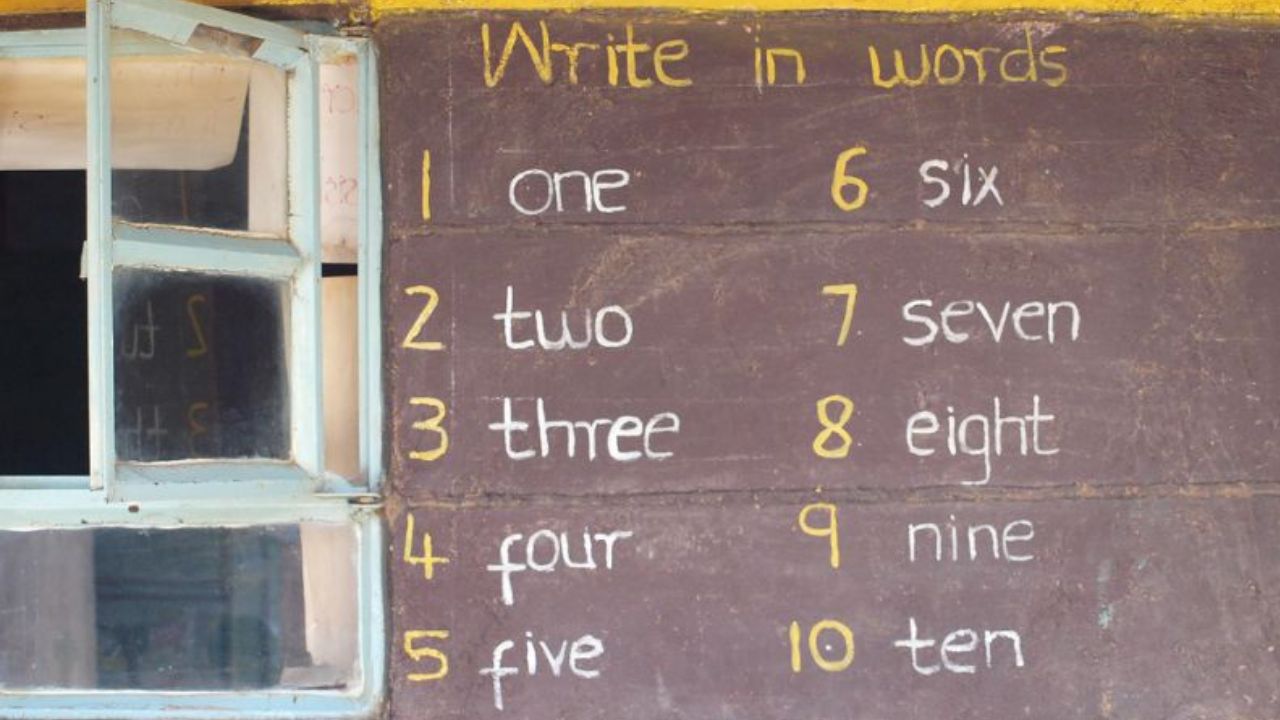 Write in words
1 one 6 six
2 two 7 seven
3 three 8 eight
4 four 9 nine
5 five 10 ten